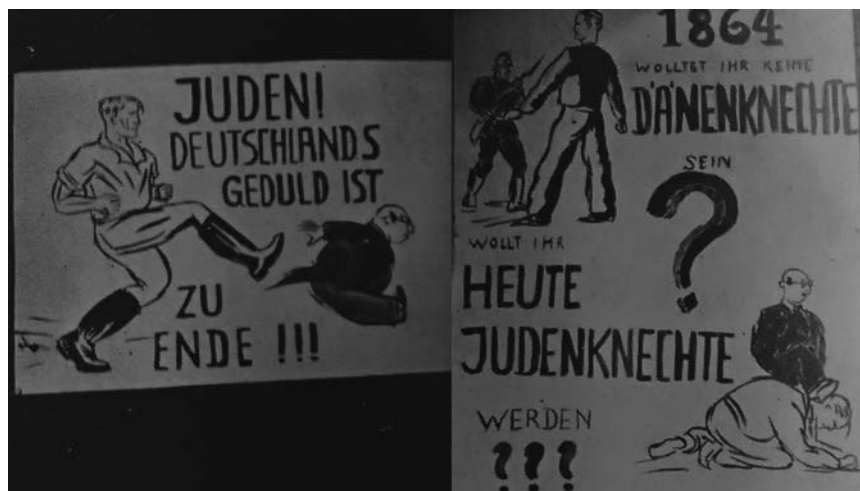 JUDEN!
DEUTSCHLANDS
GEDULD IST
ZU
ENDE !!!
1864
WOLLTET IHR KEINE
DÄNENKNECHTE
SEIN
?
WOLLT IHR
HEUTE
JUDENKNECHTE
WERDEN
???